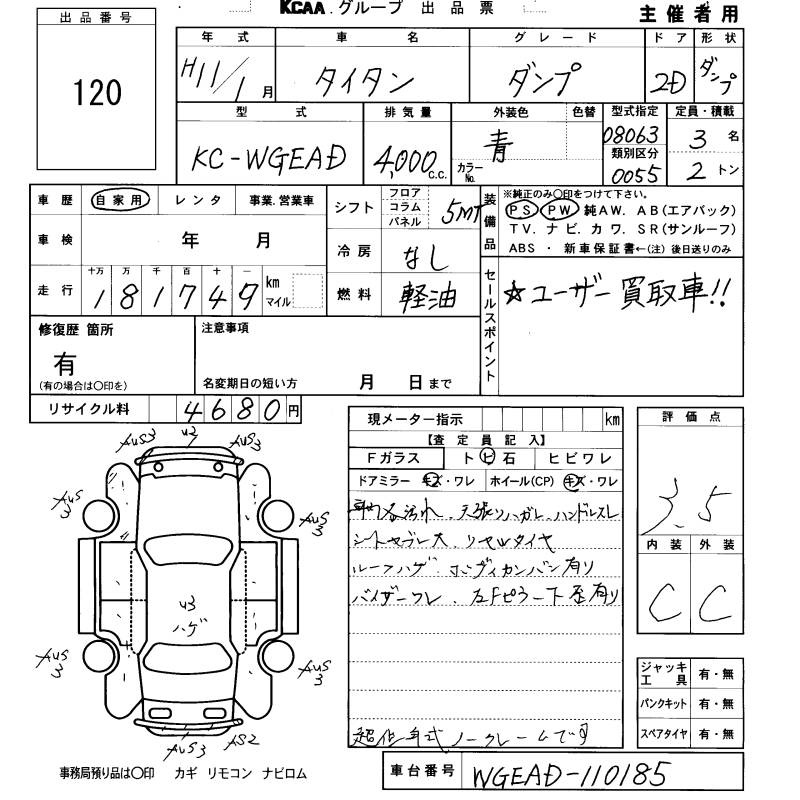 KCAA.グループ 出品票 主催者用
出品番号
120
年式 車名 グレード ドア 形状
H11/1月 タイタン ダンプ 2D ダンプ
型式 排気量 外装色 色替 型式指定 定員・積載
KC-WGEAD 4,000c.c. 青 カラーNo. 08063 3名
類別区分
0055 2トン
車歴 自家用 レンタ 事業.営業車
車検 年 月
走行 十万 万 千 百 十 一
181749 km マイル
シフト フロア コラム パネル 5MT
冷房 なし
燃料 軽油
装備品 ※純正のみ○印をつけて下さい。
PS PW 純AW. AB(エアバック)
TV. ナビ. カワ. SR(サンルーフ)
ABS ・ 新車保証書←(注) 後日送りのみ
セールスポイント ☆ユーザー買取車!!
修復歴 箇所
有
(有の場合は○印を)
注意事項
名変期日の短い方 月 日まで
リサイクル料 4680円
現メーター指示 km
【査定員記入】
Fガラス トビ石 ヒビワレ
ドアミラー キズ・ワレ ホイール(CP) キズ・ワレ
汚れ 天張りハガレ ハンドルスレ
シートヤブレ大 リヤWタイヤ
ルーフハゲ.ボディカンバン有り
バイザーワレ.左Fピラー下歪有り
低年式ノークレームです
評価点
3.5
内装 外装
C C
ジャッキ工具 有・無
パンクキット 有・無
スペアタイヤ 有・無
U3
ハゲ
事務局預り品は○印 カギ リモコン ナビロム
車台番号 WGEAD-110185